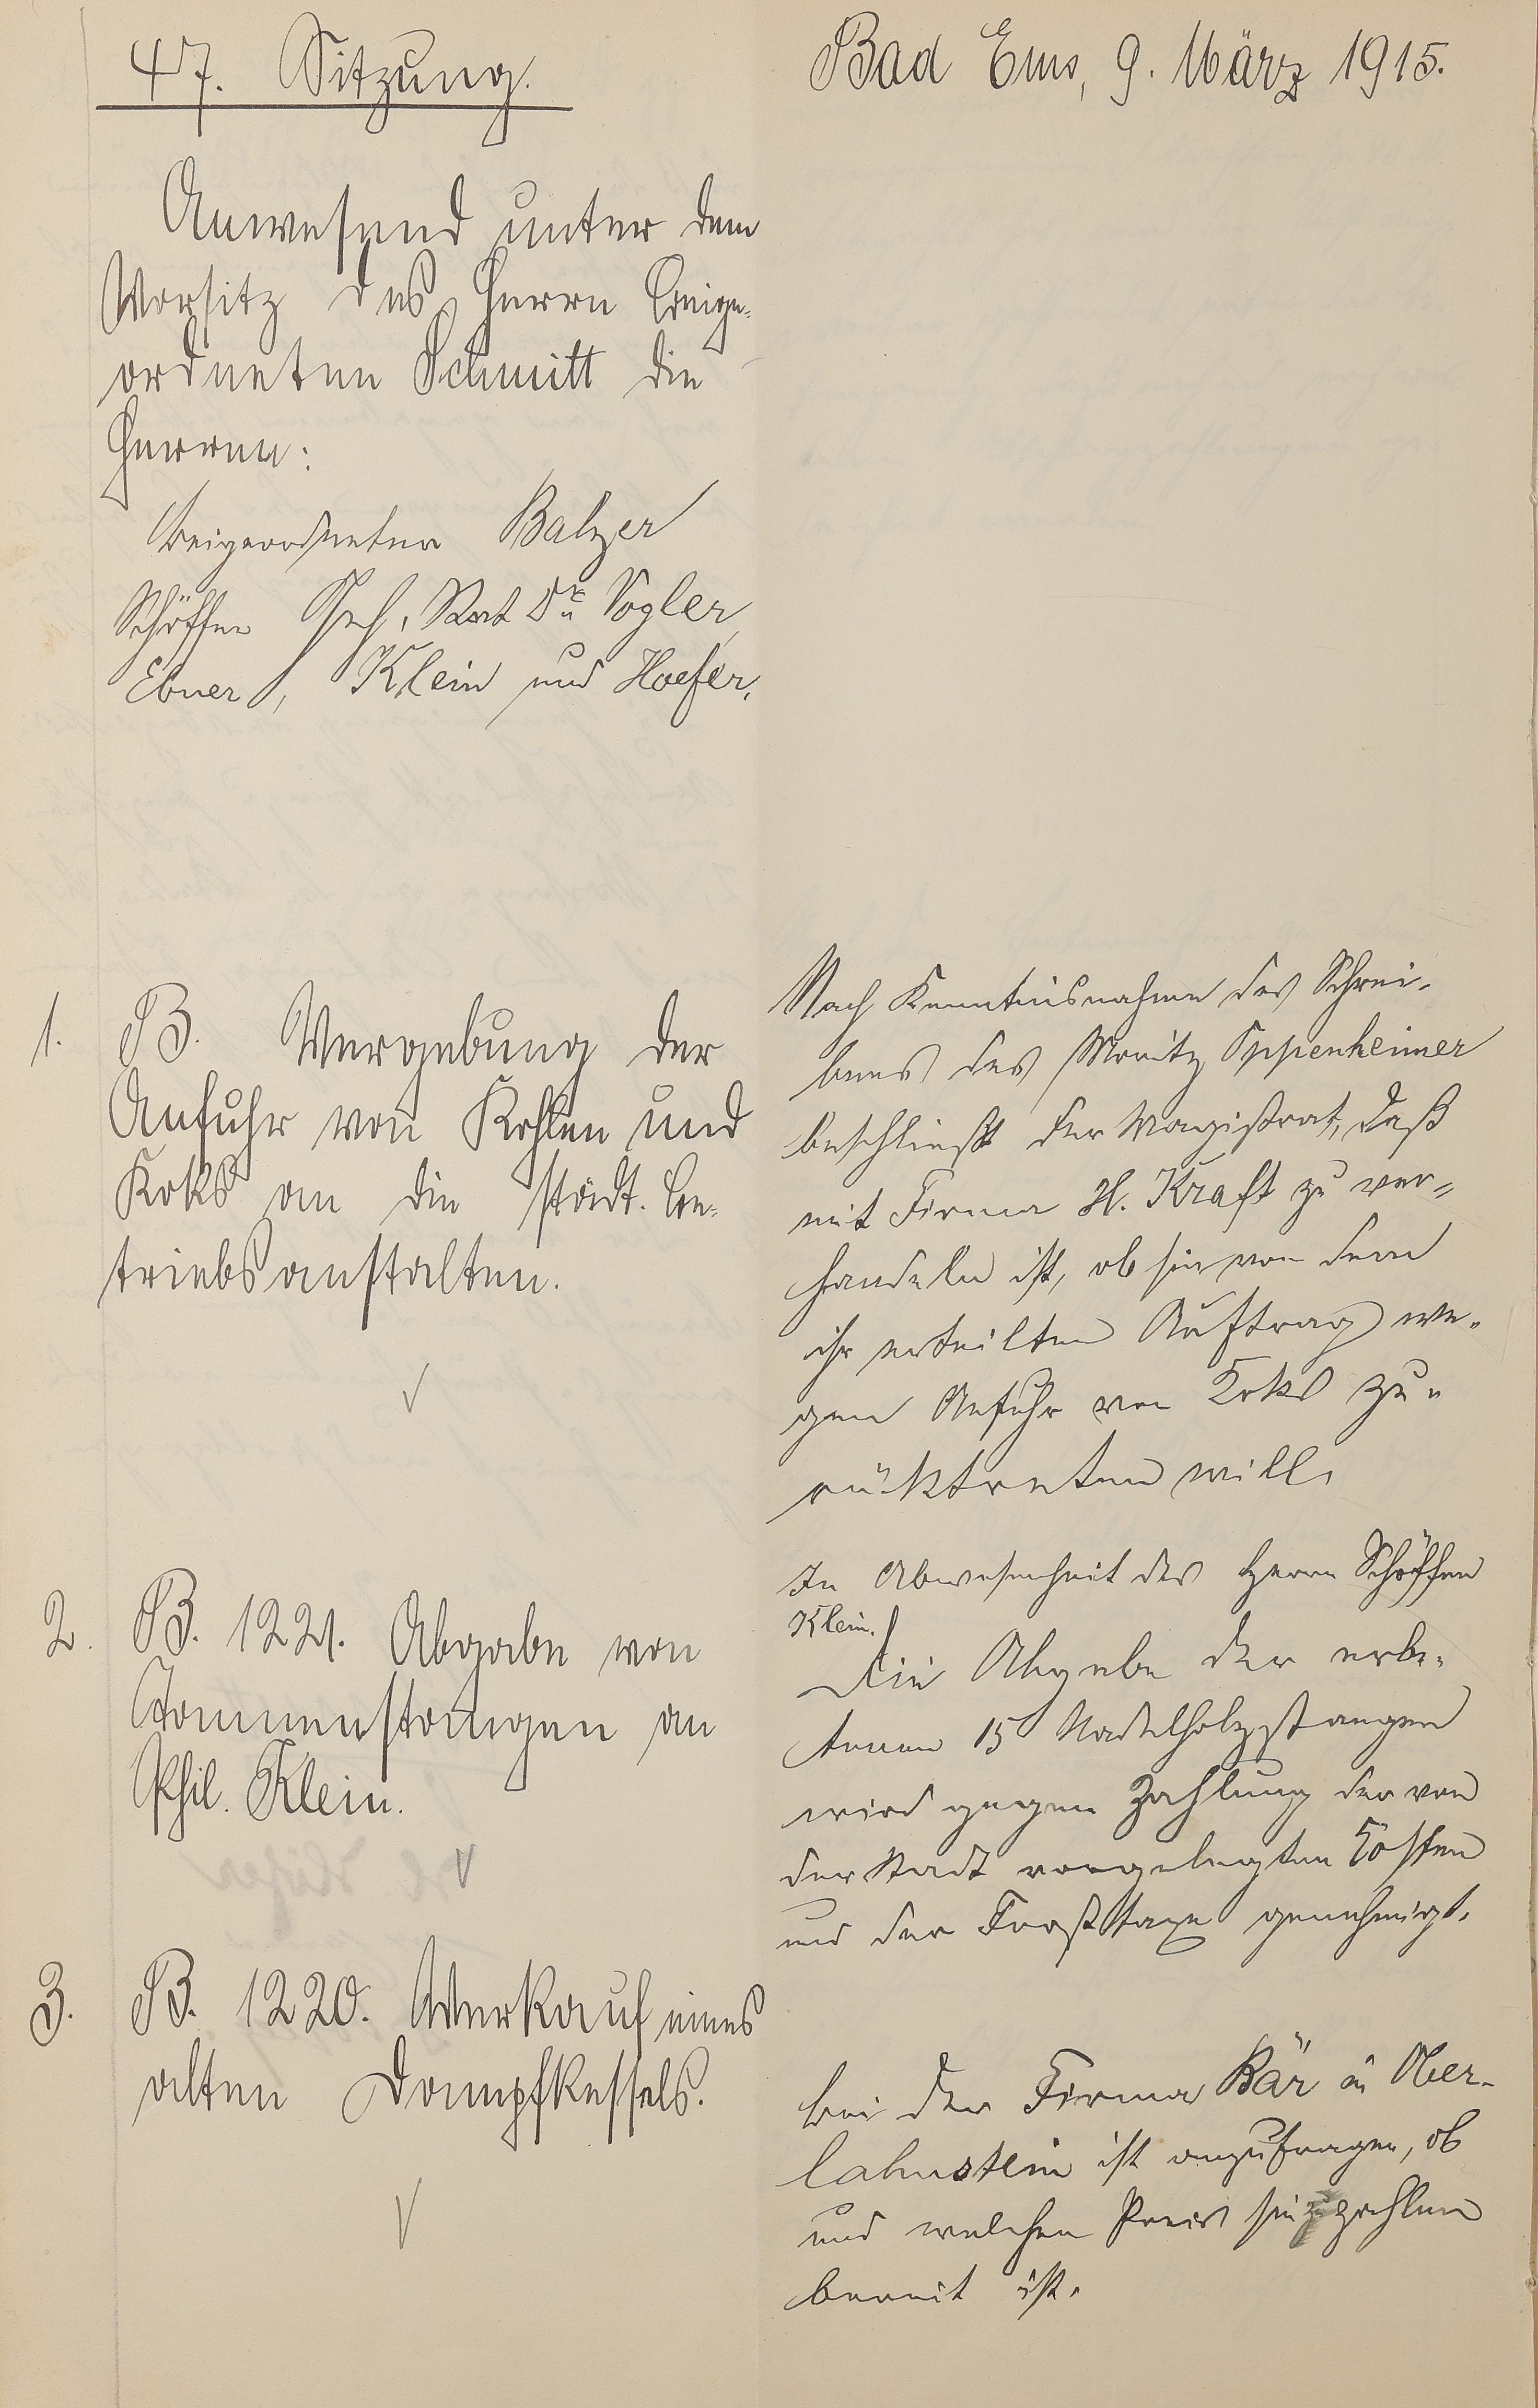 47. Sitzung.
Bad Ems, 9. März 1915.
Anwesend unter dem
Vorsitz des Herrn Beige-
ordneten Schmitt die
Herren:
Beigeordneter Balzer
Schöffen Geh. Rat Dr. Vogler,
Ebner, Klein und Hoefer.
1. B. Vergebung der
Anfuhr von Kohlen und
Koks an die städt. Be-
triebsanstalten.
Nach Kenntnisnahme des Schrei-
bens des Moritz Oppenheimer
beschließt der Magistrat, daß
mit Firma H. Kraft zu ver-
handeln ist, ob sie von dem
ihr erteilten Auftrag we-
gen Anfuhr von Koks zu-
rücktreten will.
2. B. 1221. Abgabe von
Tannenstangen an
Phil. Klein.
In Abwesenheit des Herrn Schöffen
Klein.
Die Abgabe der erbe-
tenen 15 Nadelholzstangen
wird gegen Zahlung der von
der Stadt vorgelegten Kosten
und der Forsttaxe genehmigt.
3. B. 1220. Verkauf eines
alten Dampfkessels.
Bei der Firma Bär in Ober-
lahnstein ist anzufragen, ob
und welchen Preis sie zahlen
bereit ist.